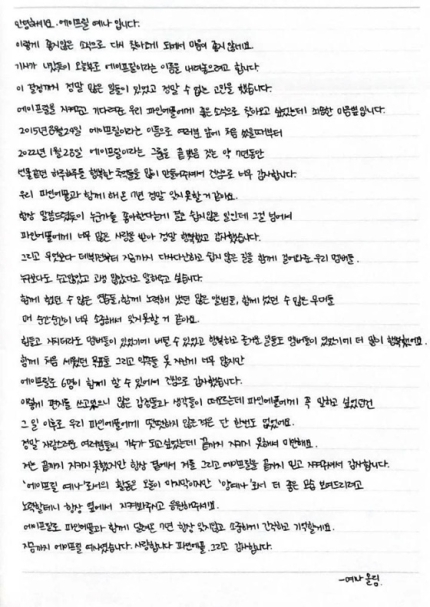 안녕하세요. 에이프릴 예나 입니다.
이렇게 좋지않은 소식으로 다시 찾아오게 되어서 마음이 좋지 않네요.
기사가 나왔듯이 오늘부로 에이프릴이라는 이름을 내려놓으려고 합니다
이 결정까지 정말 많은 일들이 있었고 정말 수 없는 고민을 했습니다.
에이프릴을 지켜주고 기다려준 우리 파인에플에게 좋은소식으로 찾아오고 싶었는데 죄송한 마음뿐입니다.
2015년 8월 24일 에이프릴이라는 이름으로 여러분 앞에 처음 섰을때부터
2022년 1월 28일 에이프릴이라는 그룹을 끝맺음 짓는 약 7년동안
선물같은 하루하루를 행복한 추억들을 많이 만들어주셔서 진심으로 너무 감사합니다.
우리 파인에플과 함께 해온 7년 정말 잊지못할거같아요.
항상 말씀드렸듯이 누군가를 좋아한다는게 결코 쉽지않은 일인데 그걸 넘어서
파인에플에게 너무 많은 사랑을 받아 정말 행복했고 감사했습니다.
그리고 무엇보다 데뷔때부터 지금까지 다사다난하고 쉽지 않은 길을 함께 걸어와준 우리 멤버들.
누구보다도 수고많았고 고생 많았다고 말해주고 싶습니다.
함께 했던 수 많은 연습들, 함께 노력해 냈던 많은 앨범들, 함께 섰던 수 많은 무대들
먼 순간순간이 너무 소중해서 잊지못할 거 같아요.
힘들고 지치더라도 멤버들이 있었기에 버틸 수 있었고 행복하고 즐거운 일들도 멤버들이 있었기에 더 많이 행복했어요.
함께 처음 세웠던 목표들 그리고 약속들 못 지킨게 너무 많지만
에이프릴로 6명이 함께 할 수 있어서 진심으로 감사했습니다.
이렇게 편지를 쓰고있으니 많은 감정들과 생각들이 떠오르는데 파인에플에게 꼭 말하고 싶었던건
그 일 이후로 우리 파인에플에게 떳떳하지 않은적은 단 한번도 없었어요.
정말 자랑스러운 여러분들의 가수가 되고싶었는데 끝까지 지키지 못해서 미안해요.
저는 끝까지 지키지 못했지만 항상 옆에서 저를 그리고 에이프릴을 끝까지 믿고 지켜주셔서 감사합니다.
'에이프릴 예나'로서의 활동은 오늘이 마지막이지만 '양예나'로서 더 좋은 모습 보여드리려고
노력할테니 항상 옆에서 지켜봐주시고 응원해주세요.
에이프릴로 파인에플과 함께 달려온 7년 항상 잊지않고 소중하게 간직하고 기억할게요.
지금까지 에이프릴 예나였습니다. 사랑합니다 파인에플. 그리고 감사합니다.
-예나 올림.